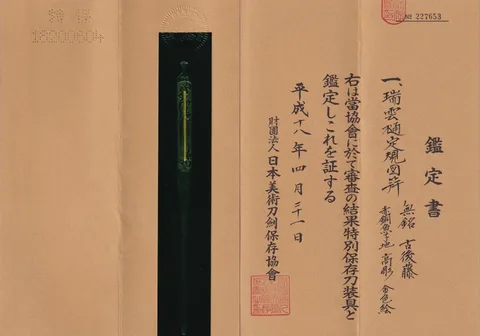 № 227653
鑑定書
一、瑞雲樋定規図笄
無銘 古後藤
赤銅魚子地 高彫 金色絵
右は當協會に於て審査の結果特別保存刀装具と
鑑定しこれを証する
平成十八年四月二十一日
財團法人 日本美術刀剣保存協會
18200604